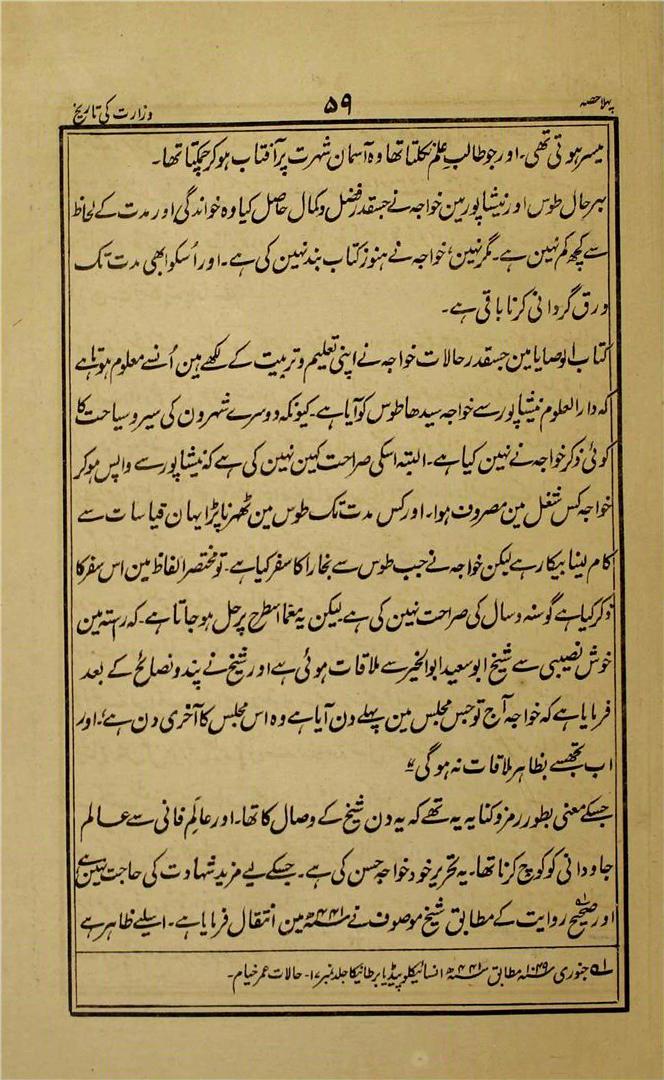 پہلا حصہ
۵۹
وزارت کی تاریخ
میسر ہوتی تھی۔ اور جو طالب علم نکلتا تھا وہ آسمان شہرت پر آفتاب ہو کر چمکتا تھا۔
بہر حال طوس اور نیشاپور مین خواجہ نے جسقدر فضل و کمال حاصل کیا وہ خواندگی اور مدت کے لحاظ
سے کچھ کم نہین ہے۔ مگر نہین، خواجہ نے ہنوز کتاب بند نہین کی ہے۔ اور اُسکو ابھی مدت تک
ورق گردانی کرنا باقی ہے۔
کتاب الوصایا مین جسقدر حالات خواجہ نے اپنی تعلیم و تربیت کے لکھے ہین اُنسے معلوم ہوتا ہے
کہ دارالعلوم نیشاپور سے خواجہ سیدھا طوس کو آیا ہے۔ کیونکہ دوسرے شہرون کی سیر و سیاحت کا
کوئی ذکر خواجہ نے نہین کیا ہے۔ البتہ اسکی صراحت کہین نہین کی ہے کہ نیشاپور سے واپس ہو کر
خواجہ کس شغل مین مصروف ہوا۔ اور کس مدت تک طوس مین ٹھہرنا پڑا یہان قیاسات سے
کام لینا بیکار ہے لیکن خواجہ نے جب طوس سے بخارا کا سفر کیا ہے۔ تو مختصر الفاظ مین اس سفر کا
ذکر کیا ہے گو سنہ و سال کی صراحت نہین کی ہے لیکن یہ معما اسطرح پر حل ہو جاتا ہے۔ کہ راستہ مین
خوش نصیبی سے شیخ ابوسعید ابوالخیر سے ملاقات ہوئی ہے اور شیخ نے پند و نصائح کے بعد
فرمایا ہے کہ خواجہ آج تو جس مجلس مین پہلے دن آیا ہے وہ اس مجلس کا آخری دن ہے، اور
اب تجھسے بظاہر ملاقات نہ ہوگی"
جسکے معنی بطور رمز و کنایہ یہ تھے کہ یہ دن شیخ کے وصال کا تھا۔ اور عالَم فانی سے عالم
جاودانی کو کوچ کرنا تھا۔ یہ تحریر خود خواجہ حسن کی ہے۔ جسکے لیے مزید شہادت کی حاجت نہین ہے
اور صحیح روایت کے مطابق شیخ موصوف نے ۴۴۱ھ مین انتقال فرمایا ہے۔ اسلیے ظاہر ہے
جنوری ۱۰۴۹ء مطابق ۴۴۱ھ انسائیکلو پیڈیا برطانیکا جلد نمبر ۱۷۔ حالات عمر خیام۔